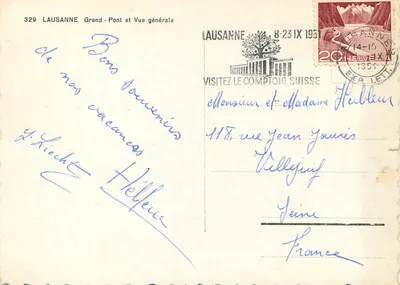 329 LAUSANNE Grand-Pont et Vue générale
Bons souvenirs
de nos vacances
Hélène
LAUSANNE 8-23 IX 1951
VISITEZ LE COMPTOIR SUISSE
LAUSANNE
14-15
IX
1951
EXP. LETT.
20
HELVETIA
Monsieur et Madame
118, rue Jean Jaurès
Villejuif
Seine
France